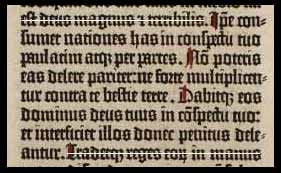 est deus magnus ⁊ terribilis. Ipe con-
sumet nationes has in conspectu tuo
paulatim atqz per partes. Nō poteris
eas delere pariter: ne forte multiplicen-
tur contra te bestie terre. Dabitqz eos
dominus deus tuus in cōspectu tuo:
et interficiet illos donec penitus dele-
antur. Tradetqz reges eoꝝ in manus